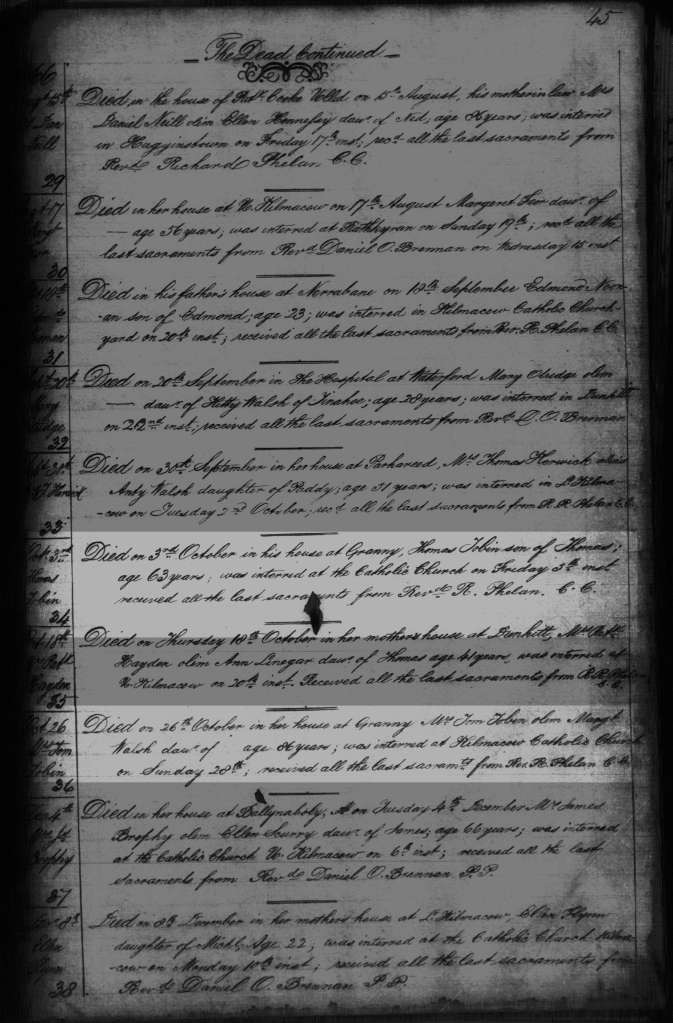 45
The Dead Continued
29
Died in the house of Robt. Cooke Esqd on 15th August, his mother in law Mrs
Daniel Neill olim Ellen Hennessy dawr. of Ned, age 86 years; was interred
in Hugginstown on Friday 17th inst; recd. all the last sacraments from
Revd. Richard Phelan C.C.
30
Died in her house at U. Kilmacow on 17th August Margaret dawr. of
— age 56 years, was interred at Rathkyran on Sunday 19th; recd. all the
last sacraments from Revd. Daniel O. Brennan on Wednesday 15 inst
31
Died in his father's house at Norrabane on 19th September Edmond
son of Edmond; age 23; was interred in Kilmacow Catholic Church-
yard on 20th inst; received all the last sacraments from Rev. R. Phelan C.C.
32
Died on 20th September in the Hospital at Waterford Mary olim
— dawr. of Kitty Walsh of; age 28 years; was interred in Dunkitt
on 22nd inst; received all the last sacraments from Revd. D. O. Brennan
33
Died on 30th September in her house at, Mrs. Thomas alias
Anty Walsh daughter of Paddy; age 31 years; was interred in Lr. Kilma-
-cow on Tuesday 2nd October; recd. all the last sacraments from R. R. Phelan C.C.
Oct. 3rd
Thos
Tobin
34
Died on 3rd October in his house at Granny, Thomas Tobin son of Thomas;
age 63 years; was interred at the Catholic Church on Friday 5th inst
received all the last sacraments from Revd. R. Phelan. C. C.
35
Died on Thursday 18th October in her mother's house at Dunkitt, Mrs. Patk.
Hayden olim Ann Linegar dawr. of Thomas age 41 years, was interred at
U. Kilmacow on 20th inst. Received all the last sacraments from R. R. Phelan
C.C.
Oct 26
Mrs Tom
Tobin
36
Died on 26th October in her house at Granny Mrs. Tom Tobin olem Margt
Walsh dawr of age 86 years; was interred at Kilmacow Catholic Church
on Sunday 28th; received all the last sacramts from Rev. R. Phelan C.C.
37
Died in her house at Ballynaboly, on Tuesday 4th December Mrs. James
Brophy olem Ellen Scurry dawr. of James; age 66 years; was interred
at the Catholic Church U. Kilmacow on 6th inst; received all the last
sacraments from Revd. Daniel O. Brennan P.P.
38
Died on 8th December in her mother's house at Lr. Kilmacow, Ellen Flynn
daughter of Michl, Age 22; was interred at the Catholic Church Kilma-
-cow on Monday 10th inst; received all the last sacraments from
Revd. Daniel O. Brennan P.P.